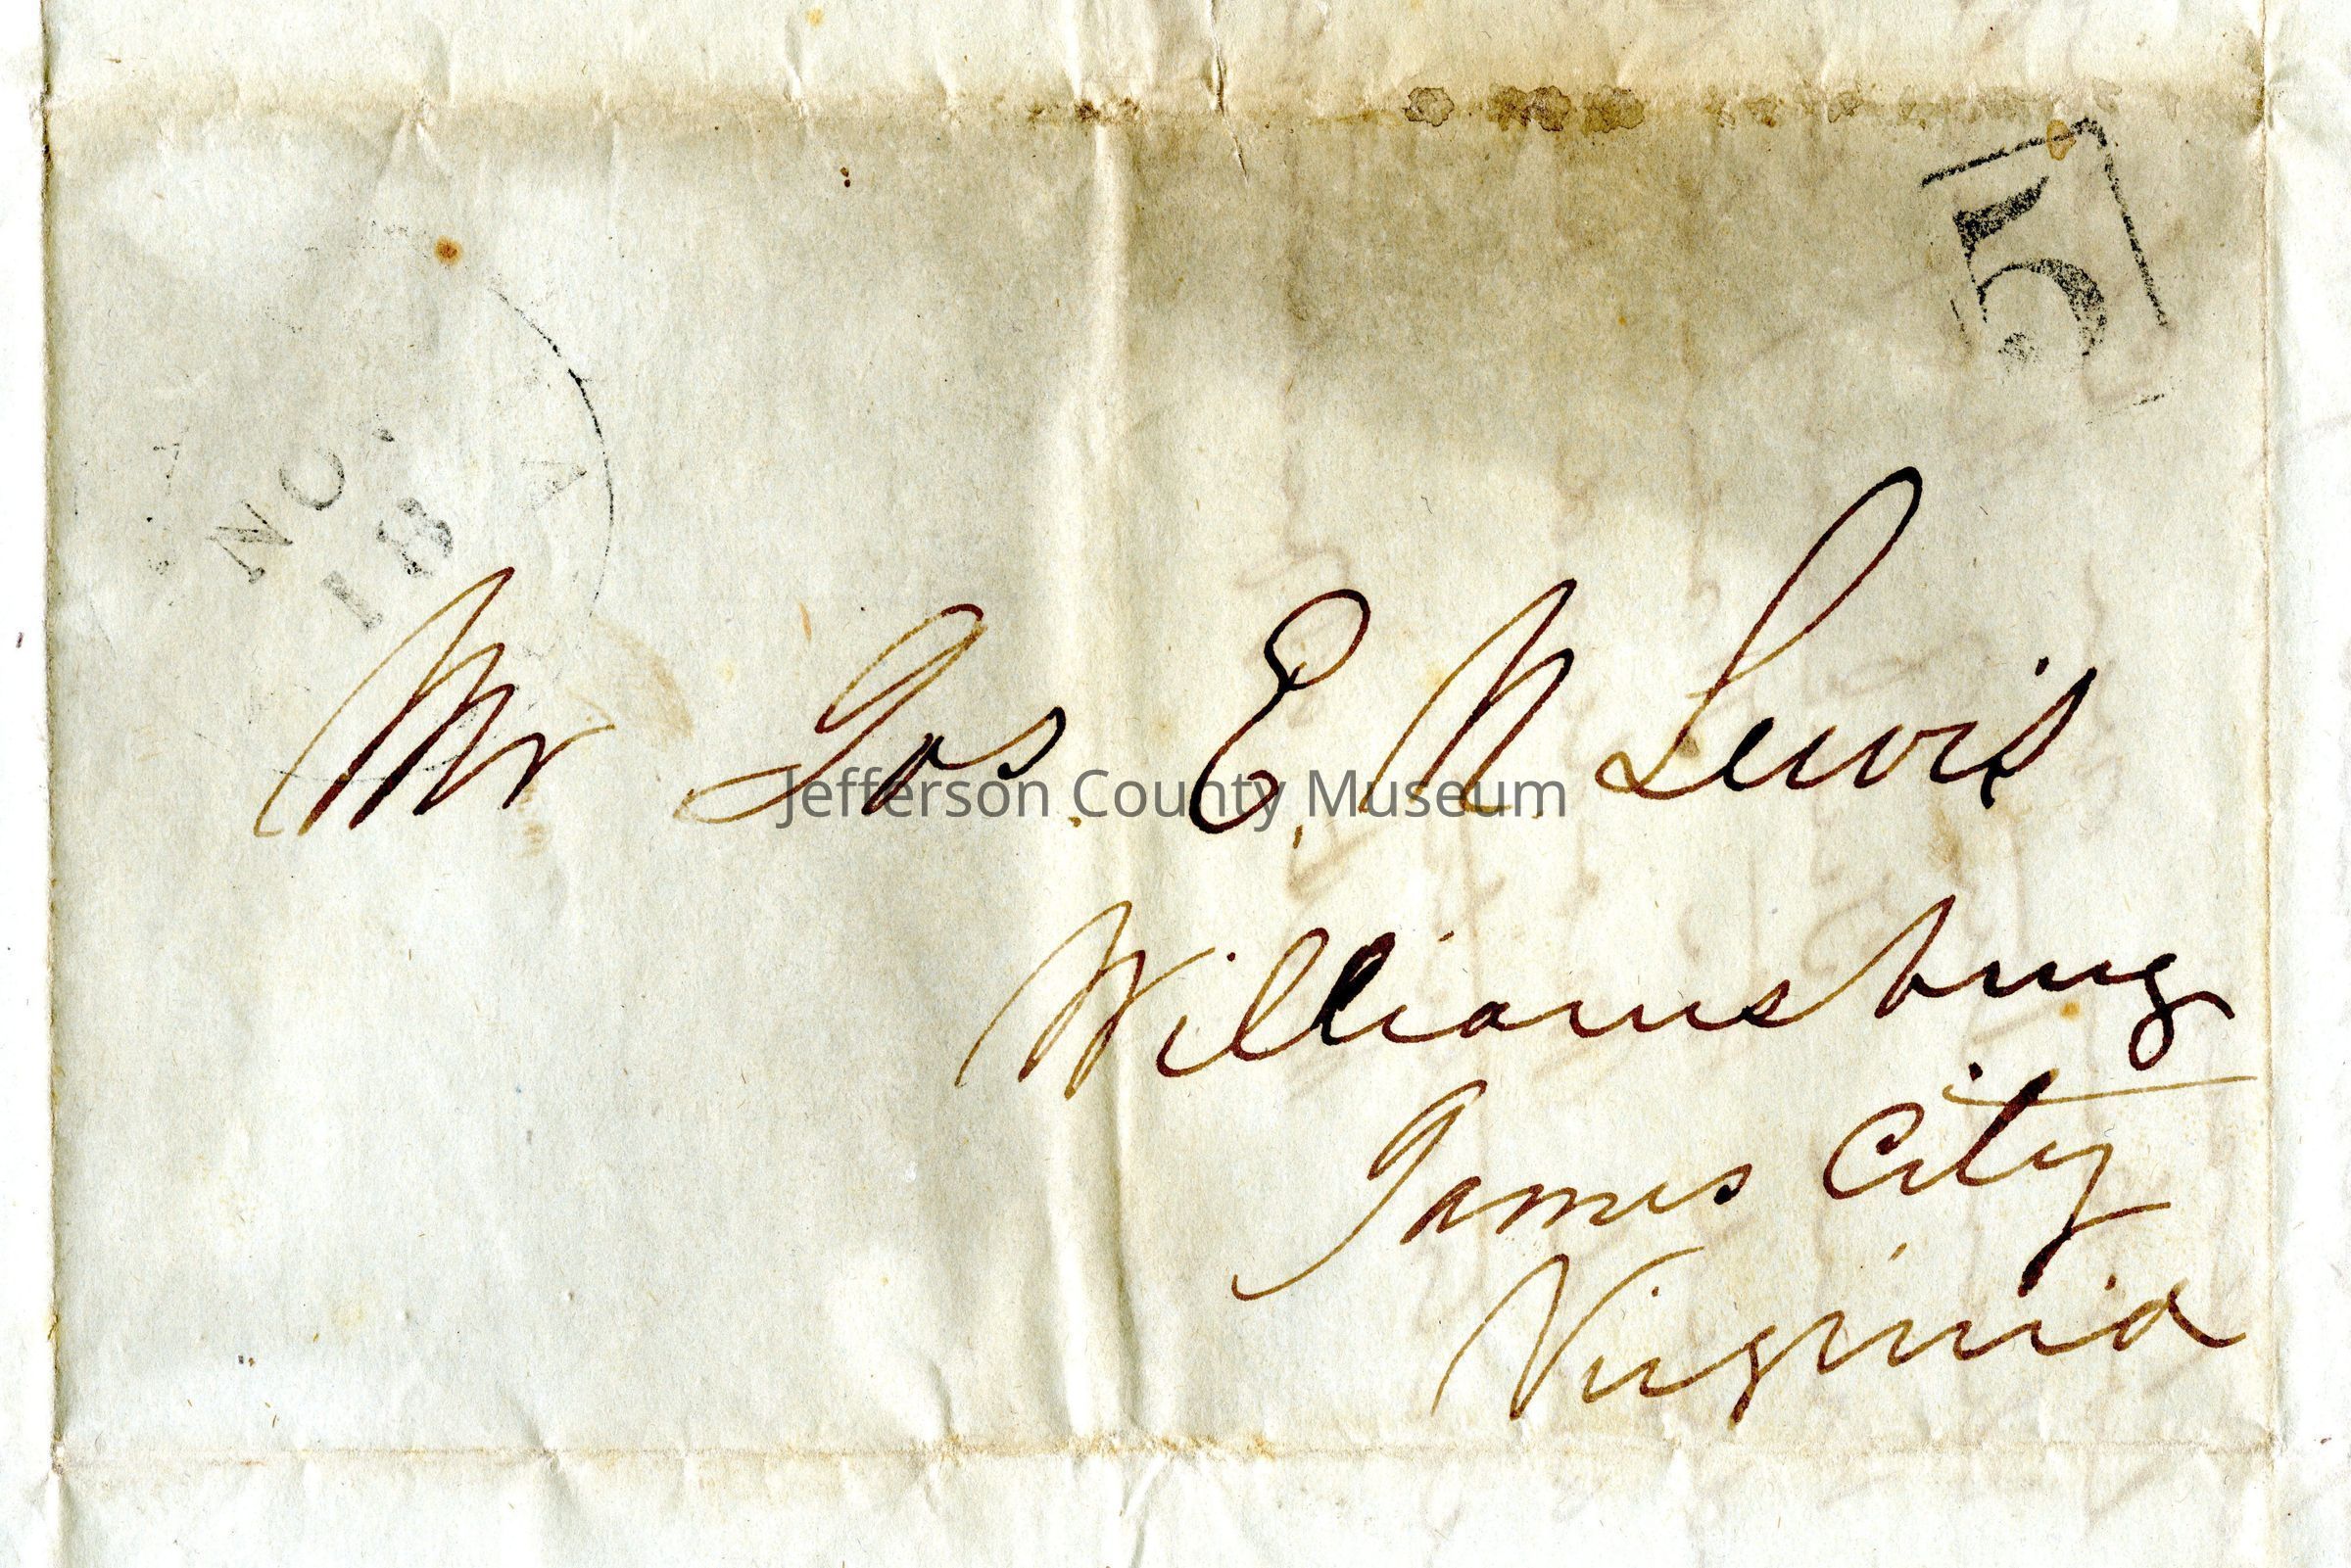 5
NO
18
Mr Jos. E. N Lewis
Jefferson County Museum
Williamsburg
James City
Virginia